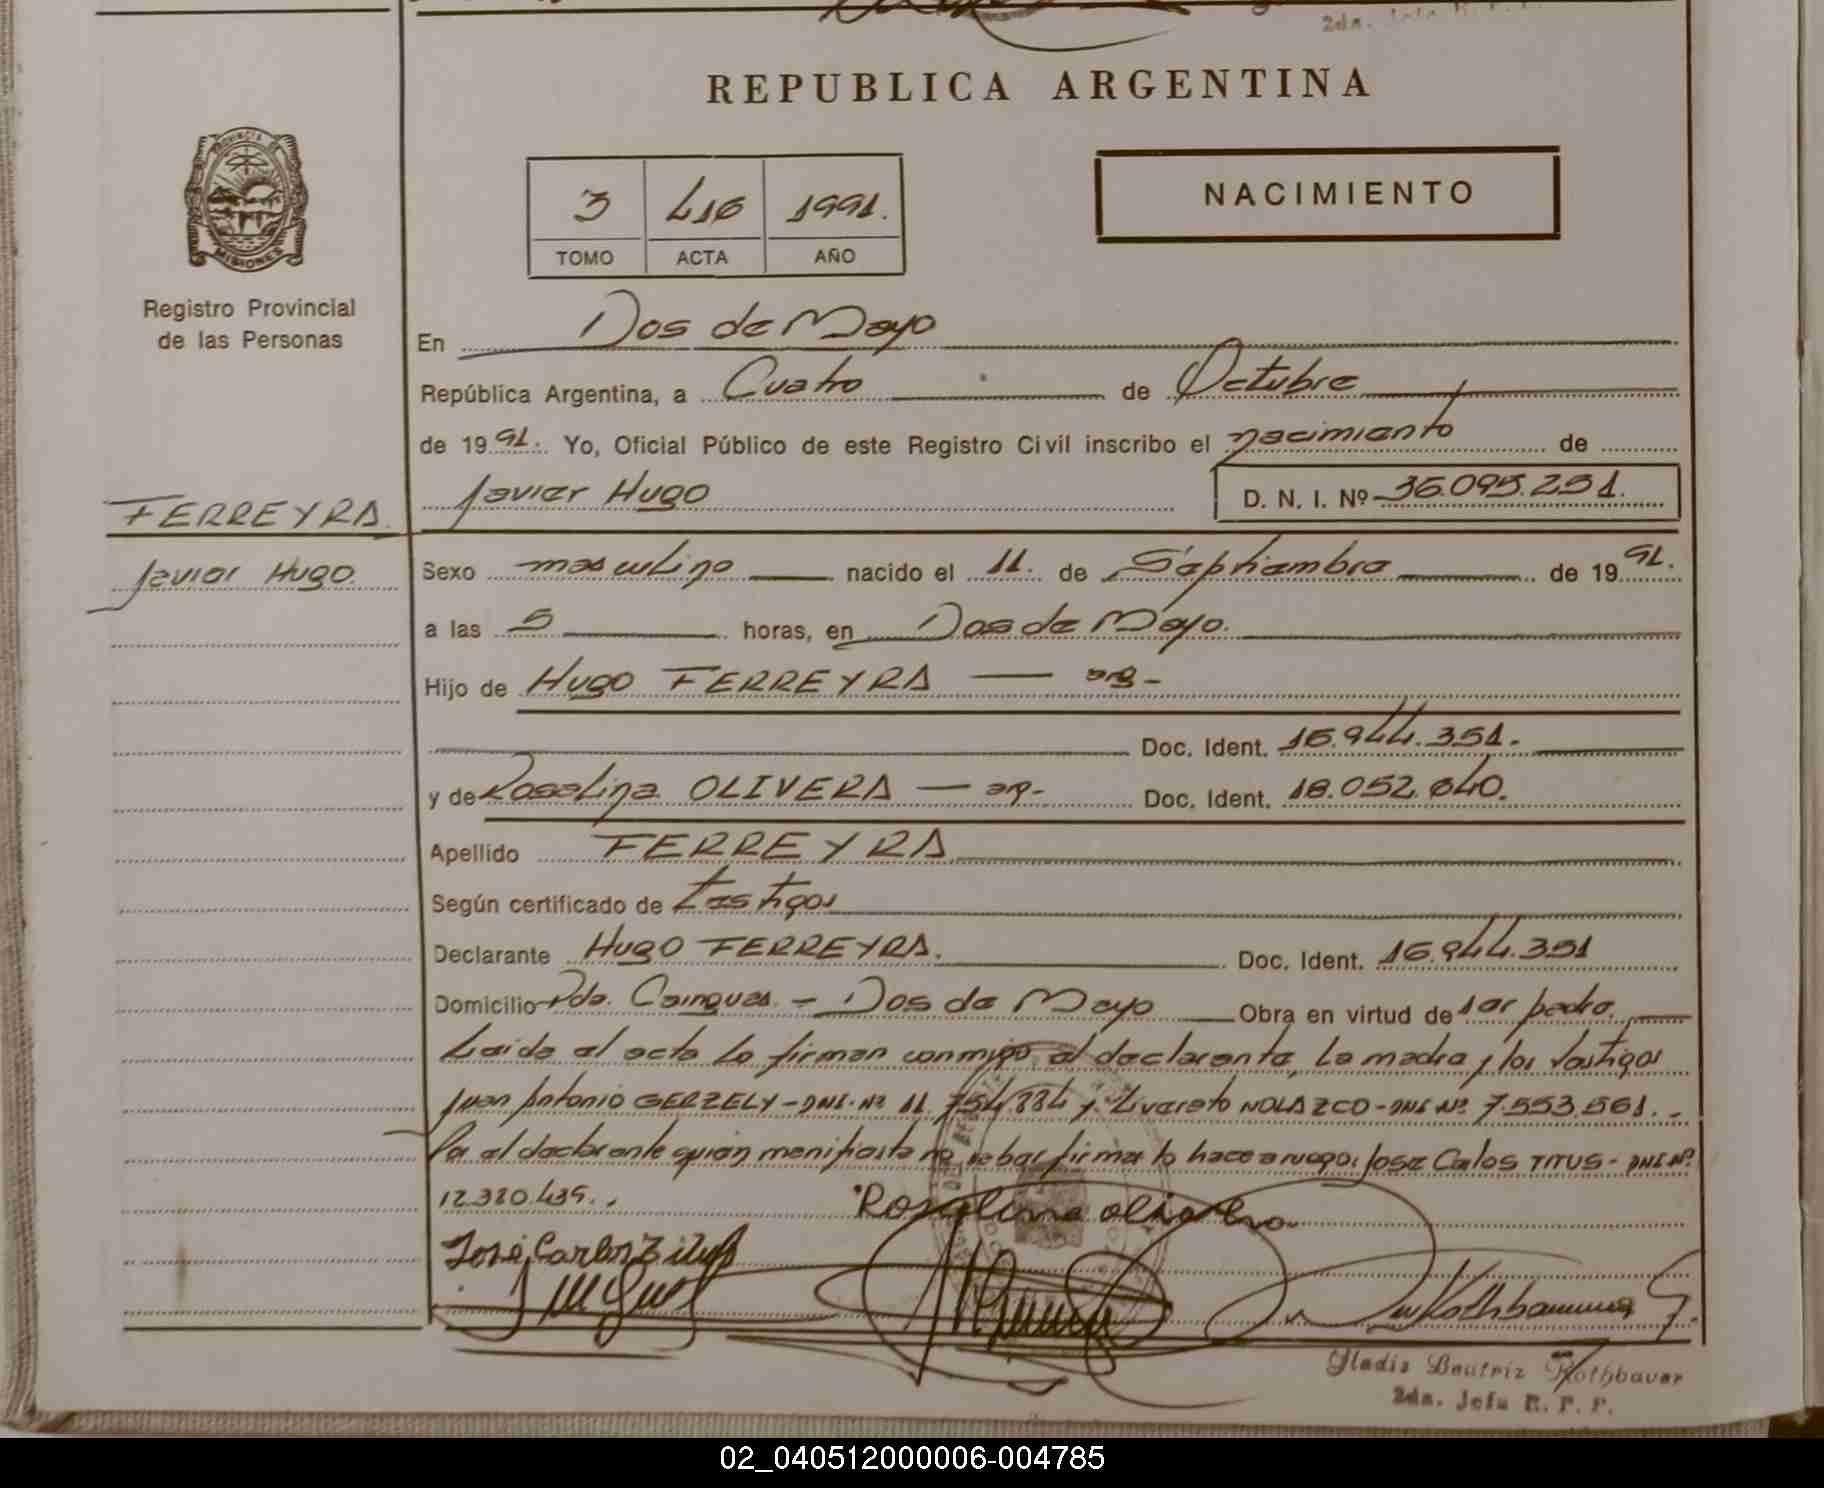 REPUBLICA ARGENTINA
PROVINCIA DE
MISIONES
Registro Provincial
de las Personas
3 416 1991.
TOMO ACTA AÑO
NACIMIENTO
En Dos de Mayo
República Argentina, a Cuatro de Octubre
de 1991. Yo, Oficial Público de este Registro Civil inscribo el nacimiento de
Javier Hugo D. N. I. Nº 36.095.251.
FERREYRA
Javier Hugo
Sexo masculino nacido el 11. de Septiembre de 1991.
a las 5 horas, en Dos de Mayo.
Hijo de Hugo FERREYRA — arg-
Doc. Ident. 16.944.351.
y de Rosalina OLIVERA — arg- Doc. Ident. 18.052.640.
Apellido FERREYRA
Según certificado de testigos
Declarante HUGO FERREYRA. Doc. Ident. 16.944.351
Domicilio Pda. Cainguas. - Dos de Mayo Obra en virtud de ser padre.
Leida el acta la firman conmigo el declarante, la madre y los testigos
Juan Antonio GERZELY - DNI. Nº 11.754.884 y Livareto NOLAZCO - DNI Nº 7.553.561. -
Por el declarante quien manifiesta no saber firmar lo hace a ruego: Jose Carlos TITUS - DNI Nº
12.320.435.
Rosalina olivera
José Carlos Titus
Gladis Beatriz Rothbauer
2da. Jefa R. P. P.
02_040512000006-004785